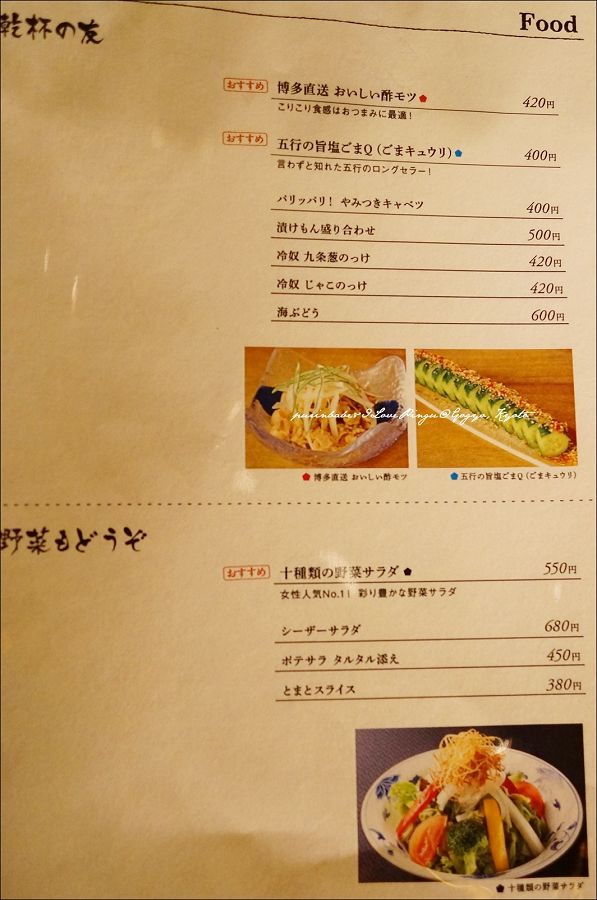 乾杯の友
Food
おすすめ 博多直送 おいしい酢モツ 420円
こりこり食感はおつまみに最適!
おすすめ 五行の旨塩ごまQ(ごまキュウリ) 400円
言わずと知れた五行のロングセラー!
パリッパリ! やみつきキャベツ 400円
漬けもん盛り合わせ 500円
冷奴 九条葱のっけ 420円
冷奴 じゃこのっけ 420円
海ぶどう 600円
purinbabe♥I Love Pingu@Gogyo, Kyoto
博多直送 おいしい酢モツ
五行の旨塩ごまQ(ごまキュウリ)
野菜もどうぞ
おすすめ 十種類の野菜サラダ 550円
女性人気No.1! 彩り豊かな野菜サラダ
シーザーサラダ 680円
ポテサラ タルタル添え 450円
とまとスライス 380円
十種類の野菜サラダ